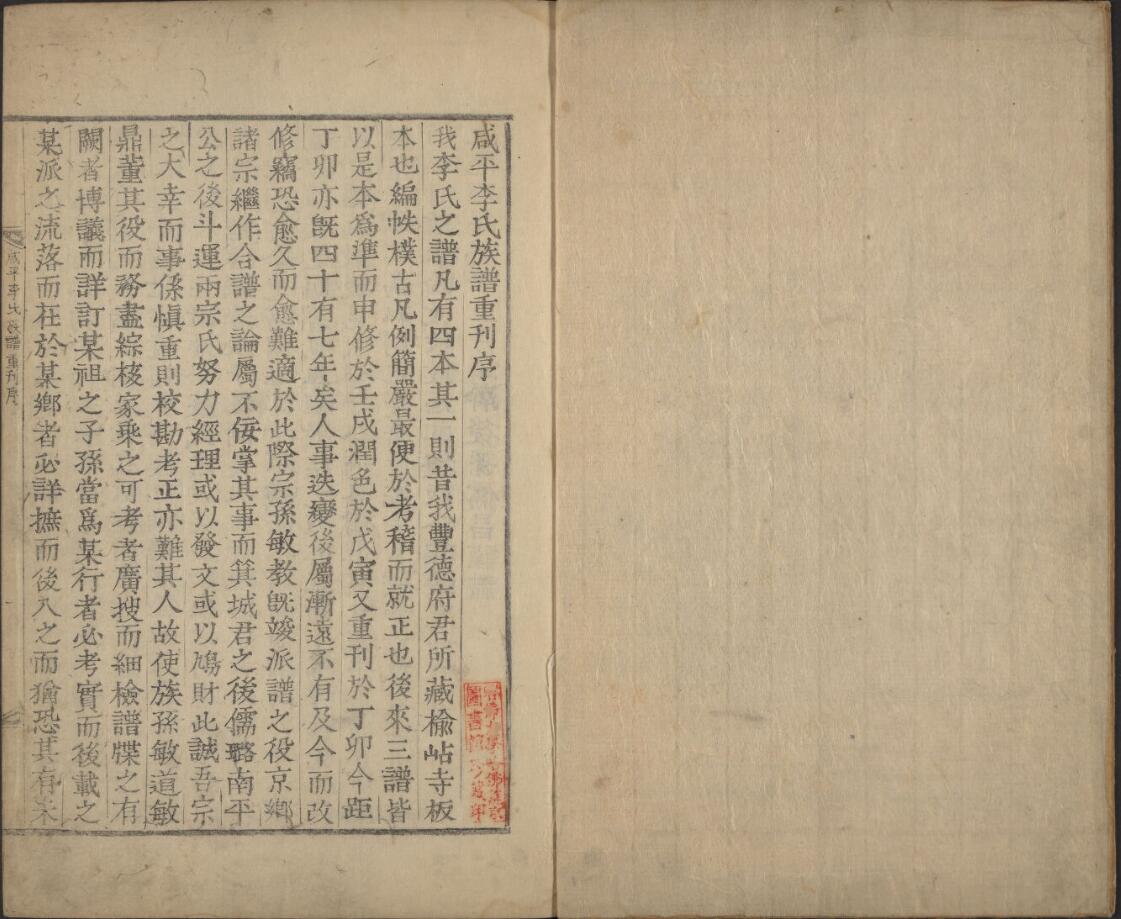 咸平李氏族譜重刊序
我李氏之譜凡有四本其一則昔我豐德府君所藏楡岾寺板
本也編帙樸古凡例簡嚴最便於考稽而就正也後來三譜皆
以是本爲準而申修於壬戌潤色於戊寅又重刊於丁卯今距
丁卯亦旣四十有七年矣人事迭變後屬漸遠不有及今而改
修竊恐愈久而愈難適於此際宗孫敏敎旣竣派譜之役京鄕
諸宗繼作合譜之論屬不佞掌其事而箕城君之後儒璐南平
公之後斗運兩宗氏努力經理或以發文或以鳩財此誠吾宗
之大幸而事係愼重則校勘考正亦難其人故使族孫敏道敏
鼎董其役而務盡綜核家乘之可考者廣搜而細檢譜牒之有
闕者博議而詳訂某祖之子孫當爲某行者必考實而後載之
某派之流落而在於某鄕者必詳摭而後入之而猶恐其有未
咸平李氏族譜 重刊序